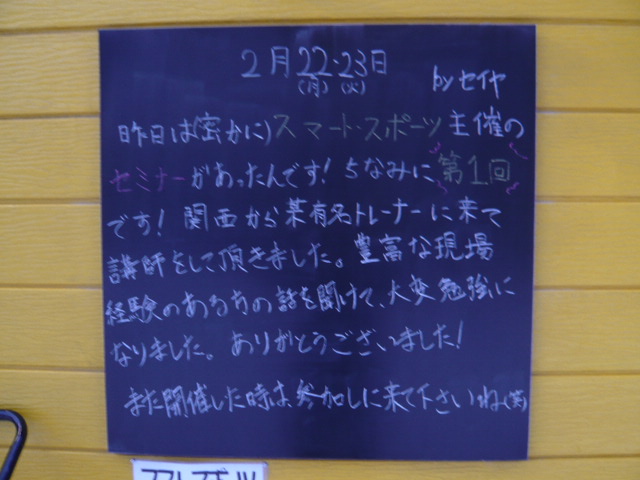 2月22・23日
(月)(火)
byセイヤ
昨日は(密かに)スマート・スポーツ主催の
セミナーがあったんです!ちなみに第1回
です!関西から某有名トレーナーに来て
講師をして頂きました。豊富な現場
経験のあるちの話を聞けて、大変勉強に
なりました。ありがとうございました!
また開催した時は、参加しに来て下さいね(笑)